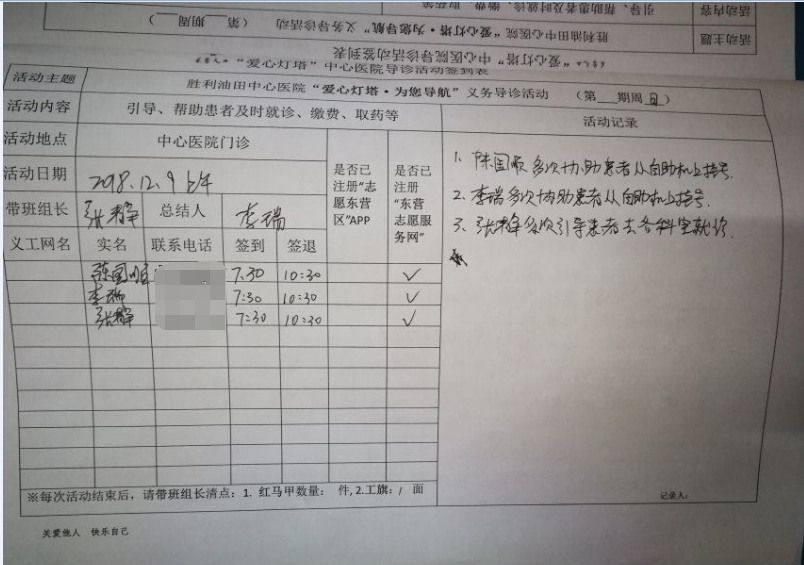 活动内容
引导、帮助患者及时就诊、缴费、取药
活动主题
胜利油田中心医院“爱心灯塔·为您导航”义务导诊活动 （第 期周 ）
“爱心灯塔”中心医院导诊活动签到表
“爱心灯塔”中心医院导诊活动签到表
活动主题 胜利油田中心医院“爱心灯塔·为您导航”义务导诊活动 （第___期周日）
活动内容 引导、帮助患者及时就诊、缴费、取药等 活动记录
活动地点 中心医院门诊 是否已注册“志愿东营区”APP 是否已注册“东营志愿服务网”
活动日期 2018.12.9 上午
带班组长 张群 总结人 李瑞
义工网名 实名 联系电话 签到 签退
陈国顺 7.30 10:30 ✓
李瑞 7:30 10:30 ✓
张群 7:30 10:30 ✓
1. 陈国顺多次协助患者从自助机上挂号.
2. 李瑞多次协助患者从自助机上挂号.
3. 张群多次引导患者去各科室就诊.
※每次活动结束后，请带班组长清点：1. 红马甲数量： 件, 2.工旗：/ 面
记录人:
关爱他人 快乐自己